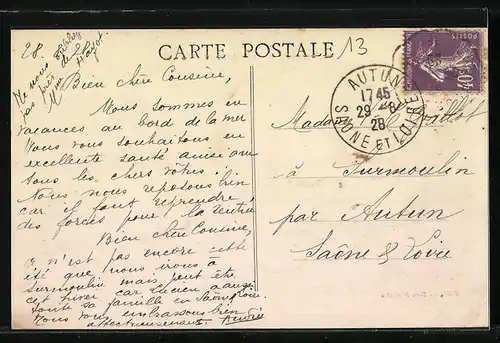 28.
Ne nous oubliez
pas près de
Mme Hayot
CARTE POSTALE
13
Bien chère Cousine,
Nous sommes en
vacances au bord de la mer
Nous vous souhaitons en
excellente santé ainsi que
tous les chers vôtres.
Nous nous reposons bien
car il faut reprendre
des forces pour la rentrée
Bien chère Cousine,
ce n'est pas encore cette
été que nous irons à
Surmoulin mais peut être
cet hiver car Lucien a
toute sa famille en Saône
Nous vous embrassons bien
affectueusement. Andrée
AUTUN
17 45
29 -8
28
SAONE ET LOIRE
40c
Madame
à Surmoulin
par Autun
Saône & Loire